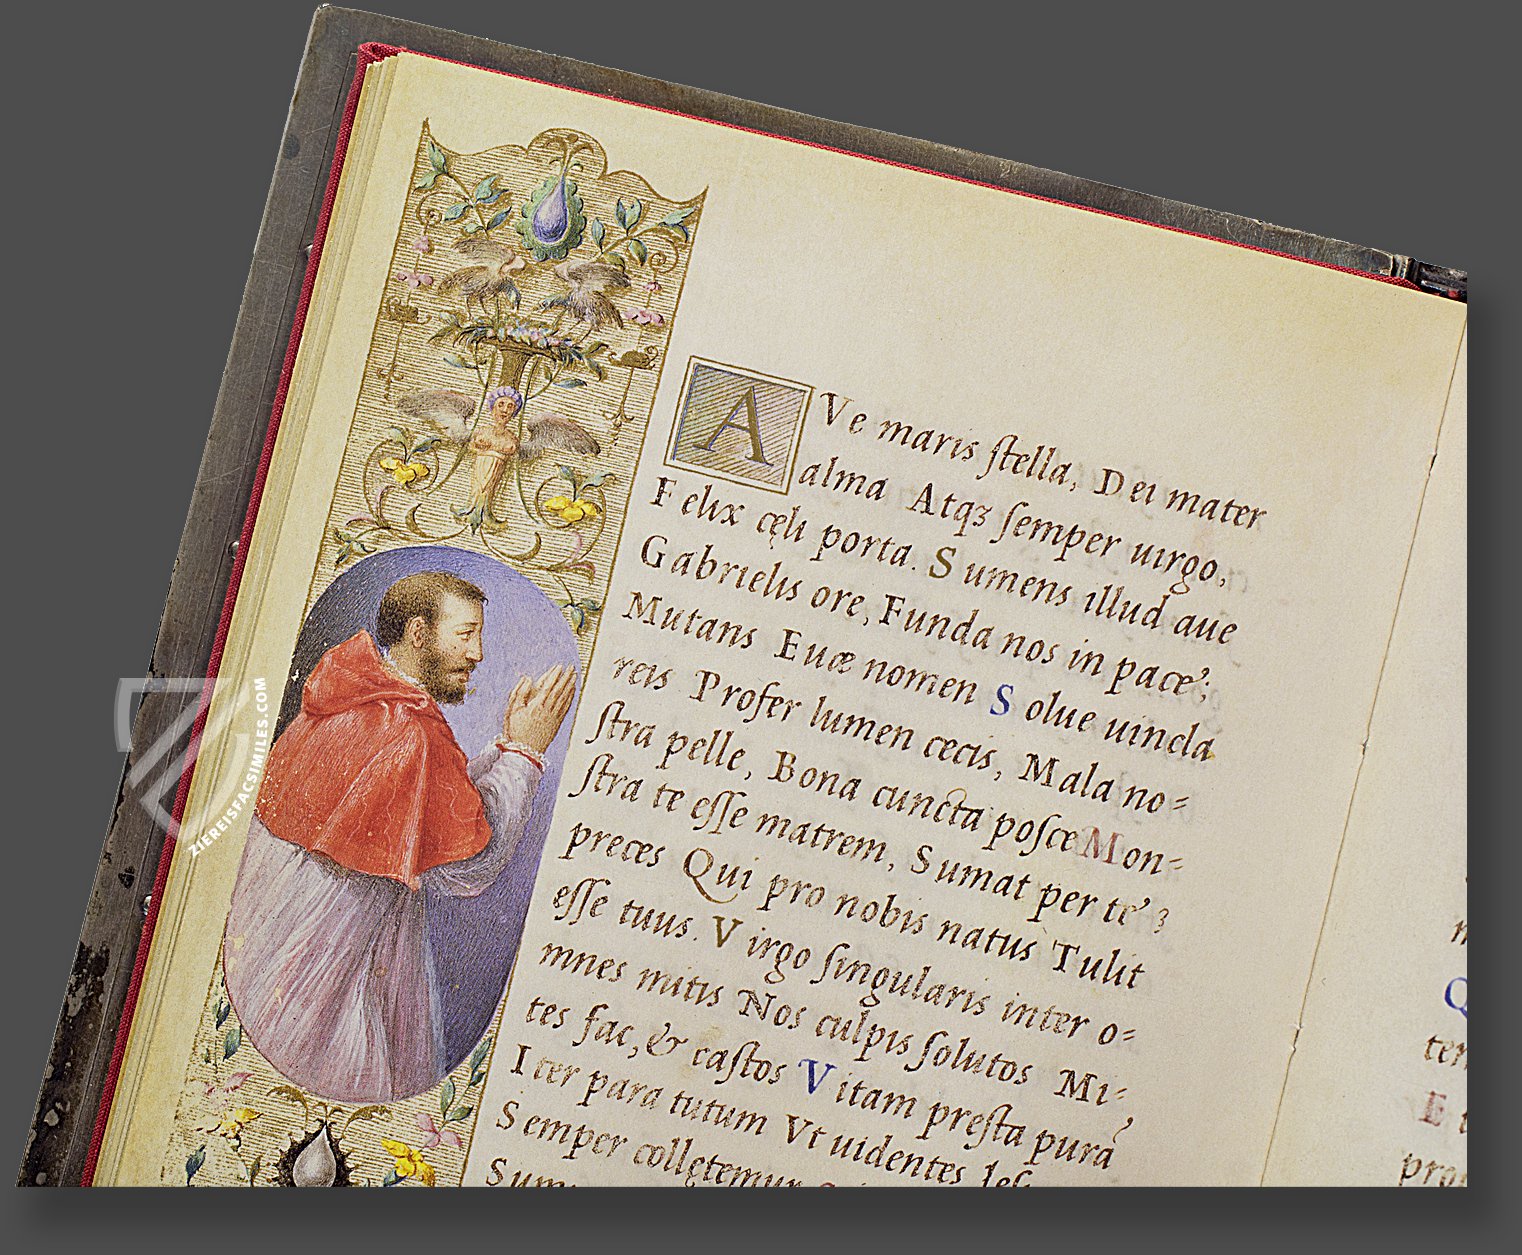 AVe maris stella, Dei mater
alma Atqꝫ semper uirgo,
Felix cęli porta. Sumens illud aue
Gabrielis ore, Funda nos in pace,
Mutans Euæ nomen Solue uincla
reis Profer lumen cecis, Mala no=
stra pelle, Bona cuncta posce Mon=
stra te esse matrem, Sumat per te
preces Qui pro nobis natus Tulit
esse tuus. Virgo singularis inter o=
mnes mitis Nos culpis solutos Mi=
tes fac, & castos Vitam presta pura
Iter para tutum Vt uidentes Ies
Semper collętemur
Sum
Q
ter
E t
pro
ZIEREISFACSIMILES.COM